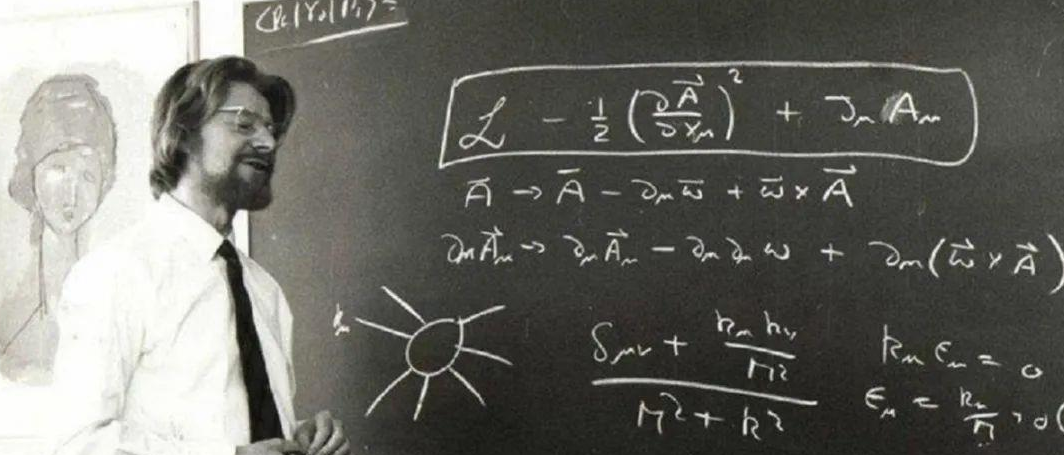 ℒ - ½ (∂A⃗/∂xμ)² + Jμ Aμ
A⃗ → A⃗ - ∂μω⃗ + ω⃗ × A⃗
∂μA⃗μ → ∂μA⃗μ - ∂μ∂μ ω + ∂μ(ω⃗ × A⃗)
kμ
(δμν + kμkν/M²)/(M² + k²)
kμ εμ = 0
εμ = kμ/M